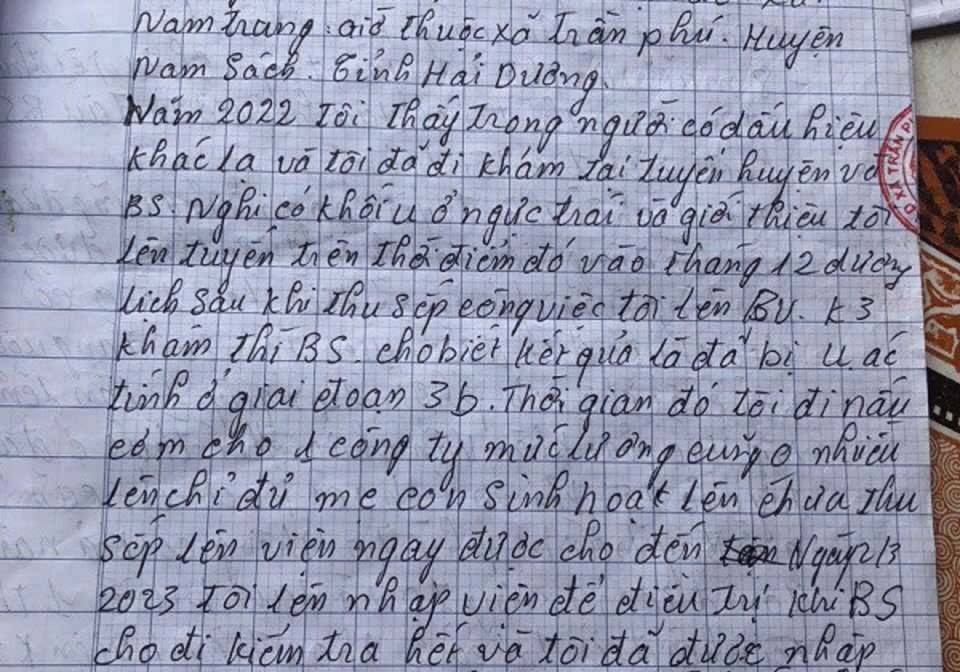 Nam Trung. giờ thuộc xã Trần phú. Huyện
Nam Sách. Tỉnh Hải Dương.
Năm 2022 tôi thấy trong người có dấu hiệu
khác lạ và tôi đã đi khám tại tuyến huyện và
BS. Nghi có khối u ở ngực trái và giới thiệu tôi
lên tuyến trên thời điểm đó vào tháng 12 dương
lịch sau khi thu sếp công việc tôi lên BV. K3
khám thì BS. cho biết kết quả là đã bị u ác
tính ở giai đoạn 3b. Thời gian đó tôi đi nấu
cơm cho 1 công ty mức lương cũng o nhiều
lên chỉ đủ mẹ con sinh hoạt lên chưa thu
sếp lên viện ngay được cho đến Ngày 2/3
2023 tôi lên nhập viện để điều trị khi BS
cho đi kiểm tra hết và tôi đã được nhập
XÃ TRẦN P